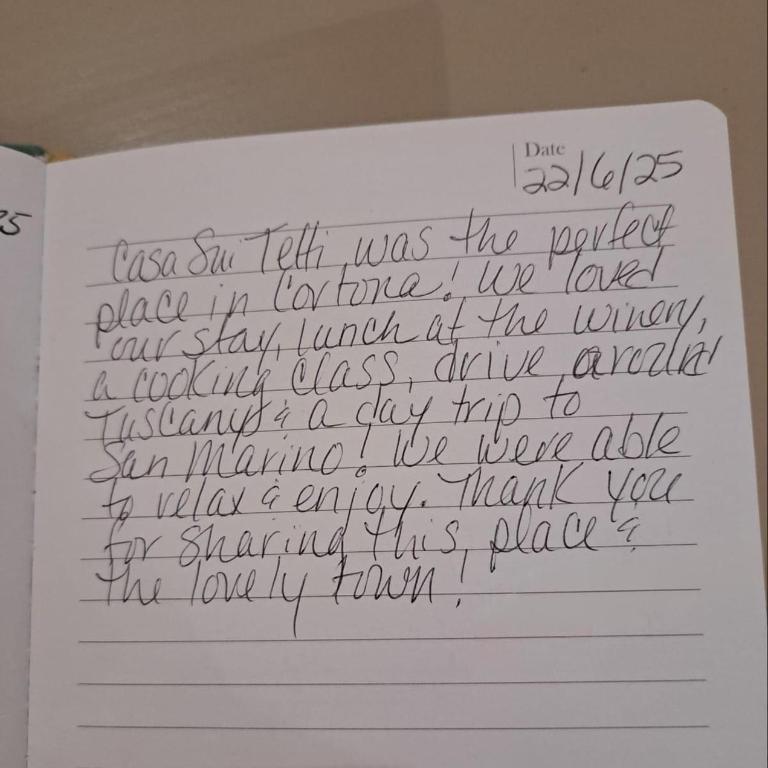 25
Date
22/6/25
Casa Sui Tetti was the perfect
place in Cortona! We loved
our stay, lunch at the winery,
a cooking class, drive around
Tuscany & a day trip to
San Marino! We were able
to relax & enjoy. Thank you
for sharing this place &
the lovely town!